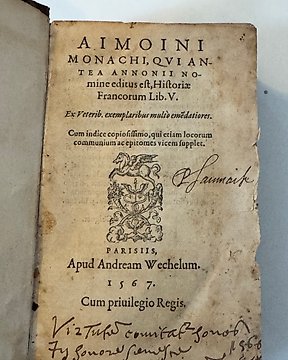 AIMOINI
MONACHI, QVI AN-
TEA ANNONII NO-
mine editus est, Historiæ
Francorum Lib. V.
Ex Veterib. exemplaribus multo emẽdatiores.
Cum indice copiosissimo, qui etiam locorum
communium ac epitomes vicem supplet.
PARISIIS,
Apud Andream Wechelum.
1567.
Cum priuilegio Regis.
Virtute comitat honos